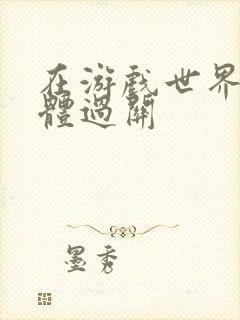 在游戏世界
體過關
墨秀